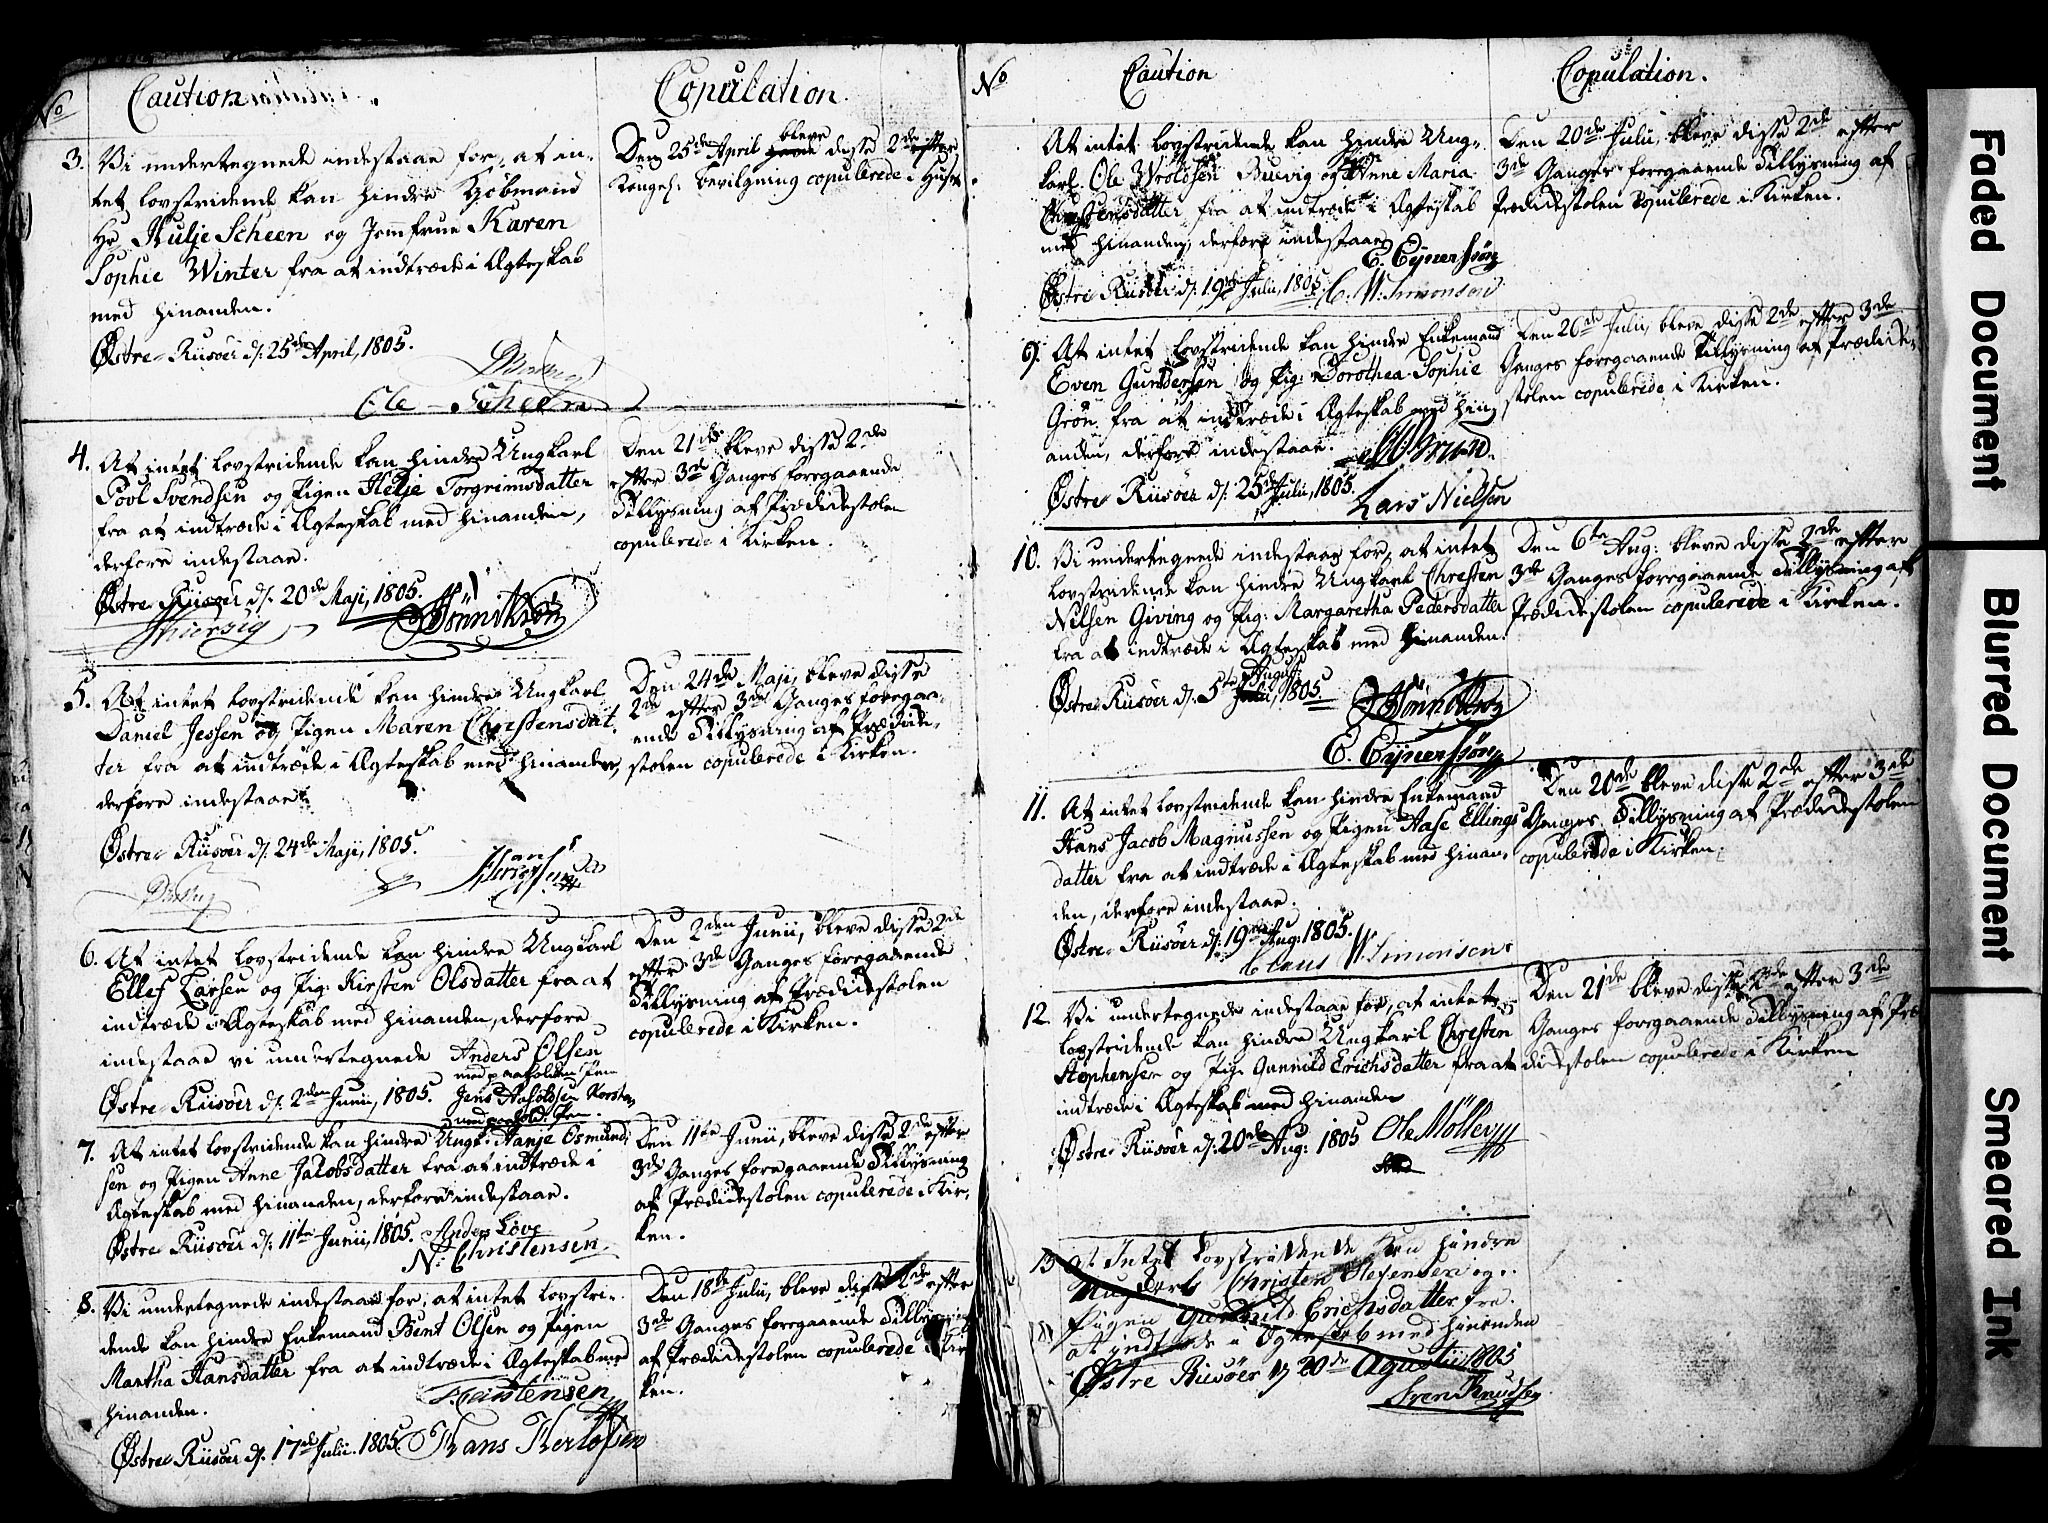 No Caution Copulation.
3. Vi undertegnede indestaae for, at in-
tet lovstridende kan hindre Kjøbmand
Hr Hulje Scheen og Jomfrue Karen
Sophie Winter fra at indtræde i Ægteskab
med hinanden.
Østre-Riisöer d: 25de April, 1805.
Ole Scheen
Den 25de April bleve disse 2de efter
Kongel: Bevilgning copulerede i Huset
4. At intet lovstridende kan hindre Ungkarl
Povl Svendsen og Pigen Helje Torgrimsdatter
fra at indtræde i Ægteskab med hinanden,
derfore indestaae.
Østre-Riisöer d: 20de Maji, 1805.
Den 21de bleve disse 2de
efter 3de Ganges foregaaende
Tillysning af Prædikestolen
copulerede i Kirken.
5. At intet lovstridende kan hindre Ungkarl
Daniel Jessen og Pigen Maren Christensdat-
ter fra at indtræde i Ægteskab med hinanden,
derfore indestaae
Østre-Riisöer d: 24de Maji, 1805.
Den 24de Maji, bleve disse
2de efter 3de Ganges foregaa-
ende Tillysning af Prædike-
stolen copulerede i Kirken.
6. At intet lovstridende kan hindre Ungkarl
Ellef Larsen og Pig: Kirsten Olsdatter fra at
indtræde i Ægteskab med hinanden, derfore
indestaae vi undertegnede Anders Olsen
med paaholden Pen
Østre-Riisöer d: 2den Junii, 1805. Jens
med paahold: Pen.
Den 2den Junii, bleve disse 2de
efter 3de Ganges foregaaende
Tillysning af Prædikestolen
copulerede i Kirken.
7. At intet lovstridende kan hindre Ungk: Hanje Osmund-
sen og Pigen Anne Jacobsdatter fra at indtræde i
Ægteskab med hinanden, derfore indestaae.
Østre Riisöer d: 11te Junii, 1805. Anders Love
N: Christensen.
Den 11te Junii, bleve disse 2de efter
3de Ganges foregaaende Tillysning
af Prædikestolen copulerede i Kir-
ken.
8. Vi undertegnede indestaae for, at intet lovstri-
dende kan hindre Enkemand Bent Olsen og Pigen
Martha Hansdatter fra at indtræde i Ægteskab med
hinanden.
Østre-Riisöer d: 17de Julii. 1805. Hans Kerlofsen
Den 18de Julii, bleve disse 2de efter
3de Ganges foregaaende Tillysning
af Prædikestolen copulerede i Kir-
ken.
No Caution Copulation.
At intet lovstridende kan hindre Ung-
karl. Ole Wroldsen Buevig og Anne Maria
Christensdatter fra at indtræde i Ægteskab
med hinanden, derfore indestaae
E. Eynerssøn
Østre-Riisöer d: 19de Julii, 1805. C. W. Simonsen
Den 20de Julii, bleve disse 2de efter
3de Ganges foregaaende Tillysning af
Prædikestolen copulerede i Kirken.
9. At intet lovstridende kan hindre Enkemand
Even Gundersen og Pig: Dorothea Sophie
Grön fra at indtræde i Ægteskab med hin-
anden, derfore indestaae.
Østre-Riisöer d: 25de Julii, 1805. Lars Nielsen
Den 26de Julii, bleve disse 2de efter 3de
Ganges foregaaende Tillysning af Prædike-
stolen copulerede i Kirken.
10. Vi undertegnede indestaae for, at intet
lovstridende kan hindre Ungkarl Christen
Nilsen Giving og Pig: Margaretha Pedersdatter
fra at indtræde i Ægteskab med hinanden.
Østre-Riisöer d: 5te Augusti, 1805.
E. Eynerssøn
Den 6te Aug: bleve disse 2de efter
3de Ganges foregaaende Tillysning af
Prædikestolen copulerede i Kirken.
11. At intet lovstridende kan hindre Enkemand
Hans Jacob Magnussen og Pigen Aase Ellings-
datter fra at indtræde i Ægteskab med hinan-
den, derfore indestaae.
Østre-Riisöer d: 19de Aug: 1805.
Claus W. Simonsen
Den 20de bleve disse 2de efter 3de
Ganges Tillysning af Prædikestolen
copulerede i Kirken.
12. Vi undertegnede indestaae for, at intet
lovstridende kan hindre Ungkarl Christen
Stephensen og Pig: Gunnild Erichsdatter fra at
indtræde i Ægteskab med hinanden
Østre-Riisöer d: 20de Aug: 1805 Ole Möller
Den 21de bleve disse 2de efter 3de
Ganges foregaaende Tillysning af Præ-
dikestolen copulerede i Kirken
13 at Intet Lovstridende kan hindre
Ungkarl Christen Stefensen og
Pigen Gunnild Erichsdatter fra
at indtrede i Egteskab med hinanden
Østre Riisöer d 20de Agustii 1805
Sven Knudsen
Faded Document
Blurred Document
Smeared Ink